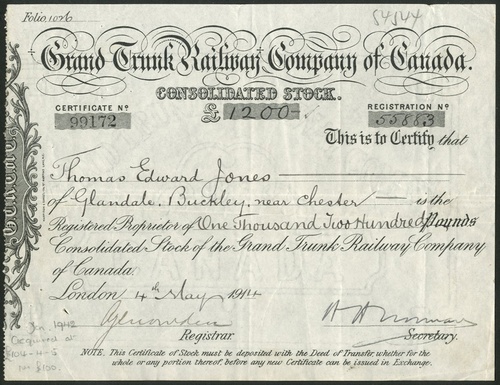 Folio, 1026
54544
Grand Trunk Railway Company of Canada.
CONSOLIDATED STOCK.
CERTIFICATE Nº
99172
£1200-
REGISTRATION Nº
55883
This is to Certify that
Thomas Edward Jones
of Glandale, Buckley, near Chester is the
Registered Proprietor of One Thousand Two Hundred Pounds
Consolidated Stock of the Grand Trunk Railway Company
of Canada.
London 4th May 1914
Jan 1942
Registrar.
Secretary.
NOTE. This Certificate of Stock must be deposited with the Deed of Transfer, whether for the
whole or any portion thereof, before any new Certificate can be issued in Exchange.